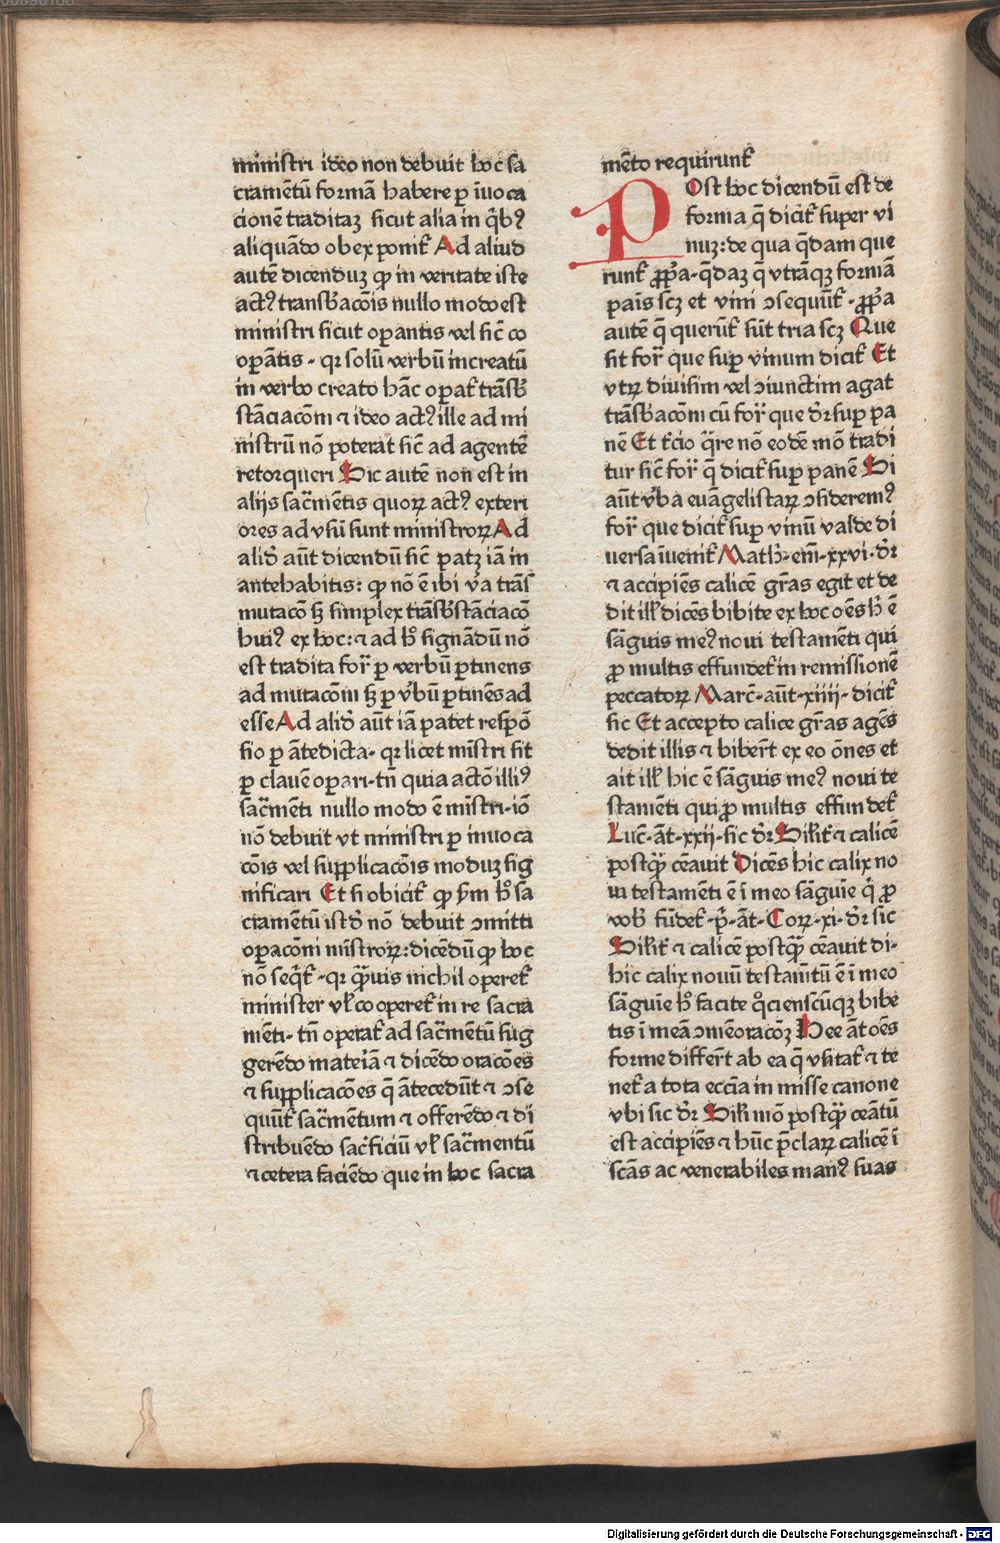 ministri ideo non debuit hoc sa
cramētū formā habere ꝑ īuoca
cionē traditaꝫ sicut alia in q̄bꝰ
aliquādo obex ponit᷑ Ad aliud
autē dicenduꝫ ꝙ in veritate iste
actꝰ transb̄acōis nullo modo est
ministri sicut oꝑantis vel sic̄ co
oꝑātis · qꝛ solū verbū increatū
in verbo creato hāc oꝑat᷑ trāsb̄
stāciacōm ⁊ ideo actꝰ ille ad mi
nistrū nō poterat sic̄ ad agentē
retorqueri Hic autē non est in
alijs sac̄mētis quoꝝ actꝰ exteri
ores ad vsū sunt ministroꝝ Ad
alid̄ aūt dicendū sic̄ patꝫ iā in
antehabitis: ꝙ nō ē ibi v̄a trās
mutacō sꝫ simplex trāsb̄stāciacō
huiꝰ ex hoc: ⁊ ad h̄ signādū nō
est tradita for᷑ ꝑ verbū ꝑtinens
ad mutacōm sꝫ ꝑ v̄bū ꝑtinēs ad
esse Ad alid̄ aūt iā patet respō
sio ꝑ ātedicta · qꝛ licet mīstri sit
ꝑ clauē oꝑari · tn̄ quia actō illiꝰ
sac̄mēti nullo modo ē mīstri · iō
nō debuit vt ministri ꝑ inuoca
cōis vel supplicacōis moduꝫ sig
nificari Et si obicit᷑ ꝙ ẜm h̄ sa
cramētū istd̄ nō debuit ↄmitti
oꝑacōni mīstroꝝ: dicēdū ꝙ hoc
nō seq̄t᷑ · qꝛ q̄uis nichil operet᷑
minister vl̄ cooperet᷑ in re sacra
mēti · tn̄ operat᷑ ad sac̄mētū sug
gerēdo materiā ⁊ dicēdo oracōes
⁊ supplicacōes q̄ ātecedūt ⁊ ↄse
quūt᷑ sac̄mentum ⁊ offerēdo ⁊ di
stribuēdo sac̄ficiū vl̄ sac̄mentū
⁊ cetera faciēdo que in hoc sacra
mēto requirunt᷑
POst hoc dicendū est de
forma q̄ dicit᷑ super vi
nuꝫ: de qua q̄dam que
runt᷑ ꝓpͥa · q̄daꝫ q̄ vtrāqꝫ formā
pais̄ scꝫ et vini ↄsequūt᷑ · ꝓpͥa
autē q̄ querūt᷑ sūt tria scꝫ Que
sit for᷑ que suꝑ vinum dicit᷑ Et
vtꝝ diuisim vel ↄiunctim agat
trāsb̄acōm cū for᷑ que d᷑r suꝑ pa
nē Et t᷑cio q̄re nō eodē mō tradi
tur sic̄ for᷑ q̄ dicit᷑ suꝑ panē Si
aūt v̄ba euāgelistaꝝ ↄsideremꝰ
for᷑ que dicit᷑ suꝑ vinū valde di
uersa īuenit᷑ Math̄ · em̄ · xxvi · d᷑r
⁊ accipiēs calicē gr̄as egit et de
dit ill᷑ dicēs bibite ex hoc oēs h̄ ē
sāguis meꝰ noui testamēti qui
ꝓ multis effundet᷑ in remissionē
peccatoꝝ Marc̄ · aūt · xiiii · dicit᷑
sic Et accepto calice gr̄as agēs
dedit illis ⁊ biber̄t ex eo ōnes et
ait ill᷑ hic ē sāguis meꝰ noui te
stamēti qui ꝓ multis effundet᷑
Luc̄ · āt · xxij · sic d᷑r Silit᷑ ⁊ calicē
postq̄ cēauit Dicēs hic calix no
ui testamēti ē ī meo sāguie q̄ ꝓ
vob̄ fūdet᷑ · p̄ · āt · Coꝝ · xi · d᷑r sic
Silit᷑ ⁊ calicē postq̄ cēauit di·
hic calix nouū testam̄tū ē ī meo
sāguie h̄ facite q̊cienscūqꝫ bibe
tis ī meā ↄmēoracōꝫ Hee āt oēs
forme differ̄t ab ea q̄ vsitat᷑ ⁊ te
net᷑ a tota ecc̄ia in misse canone
vbi sic d᷑r Sil᷑ mō postq̄ cēatū
est accipiēs ⁊ hūc p̄clarꝫ calicē ī
scās ac venerabiles manꝰ suas
Digitalisierung gefördert durch die Deutsche Forschungsgemeinschaft - DFG